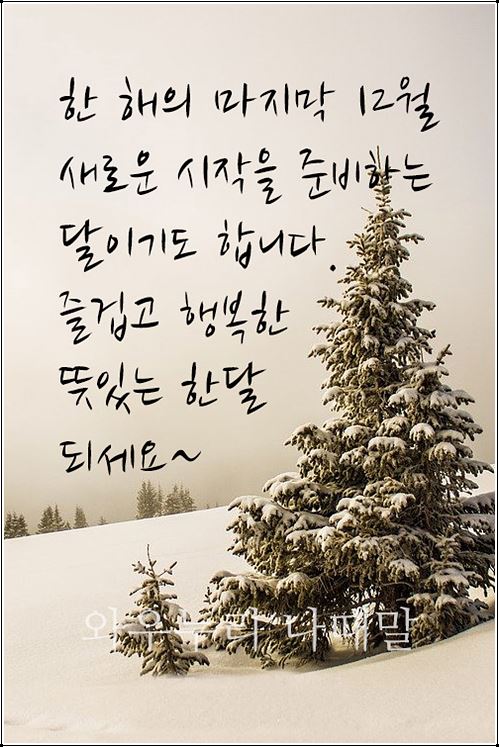 한 해의 마지막 12월
새로운 시작을 준비하는
달이기도 합니다.
즐겁고 행복한
뜻있는 한달
되세요~
와우누리 나때말